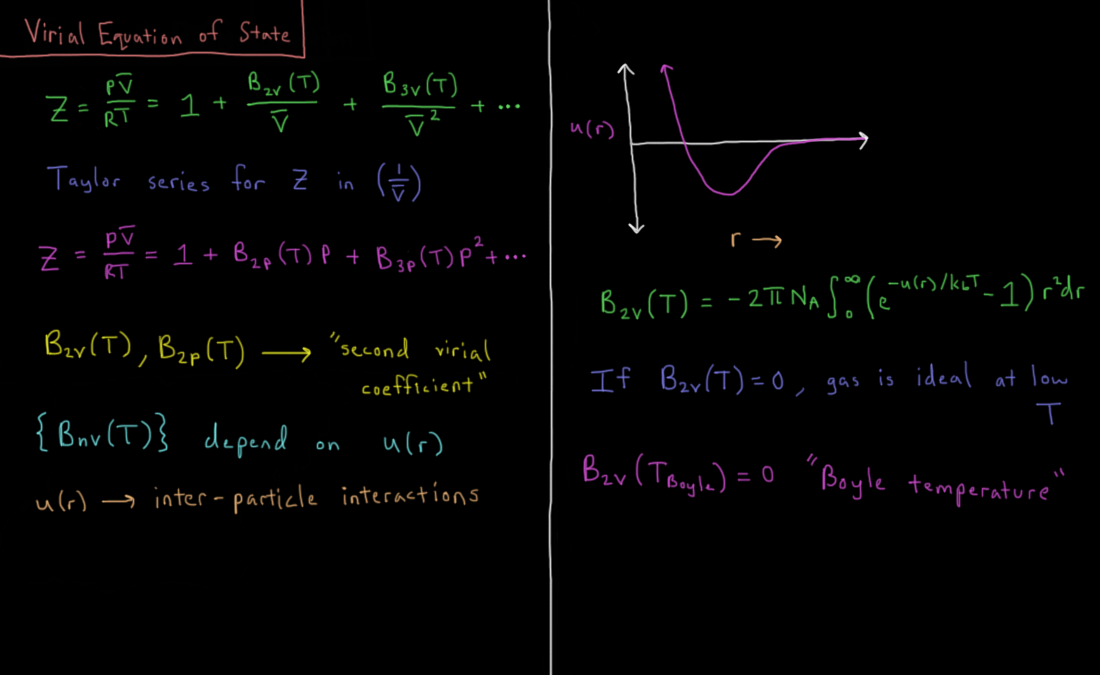 Virial Equation of State
Z = PV̅/RT = 1 + B₂ᵥ(T)/V̅ + B₃ᵥ(T)/V̅² + ...
Taylor series for Z in (1/V̅)
Z = PV̅/RT = 1 + B₂ₚ(T)P + B₃ₚ(T)P² + ...
B₂ᵥ(T), B₂ₚ(T) → "second virial
coefficient"
{Bₙᵥ(T)} depend on u(r)
u(r) → inter-particle interactions
u(r)
r →
B₂ᵥ(T) = -2π N_A ∫₀^∞ (e^(-u(r)/k_bT) - 1) r²dr
If B₂ᵥ(T) = 0, gas is ideal at low
T
B₂ᵥ(T_Boyle) = 0 "Boyle temperature"